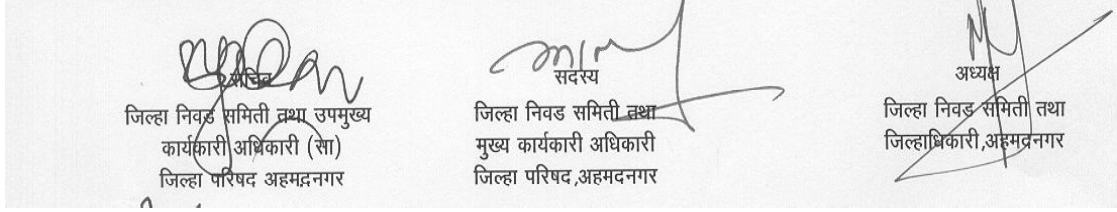 सचिव
जिल्हा निवड समिती तथा उपमुख्य
कार्यकारी अधिकारी (सा)
जिल्हा परिषद अहमदनगर
सदस्य
जिल्हा निवड समिती तथा
मुख्य कार्यकारी अधिकारी
जिल्हा परिषद,अहमदनगर
अध्यक्ष
जिल्हा निवड समिती तथा
जिल्हाधिकारी,अहमदनगर